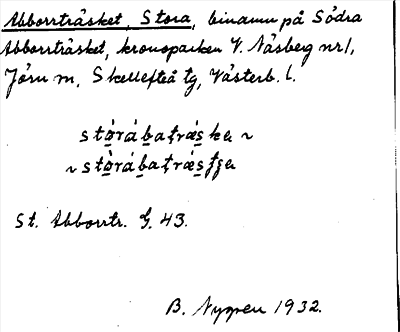 Abborrträsket, Stora, binamn på Södra
Abborrträsket, kronoparken V. Näsberg nr 1,
Jörn sn, Skellefteå tg, Västerb. l.
stòrábatræska ~
~ stòrábatræsʃʃa
St. Abborrtr. G. 43.
B. Nygren 1932.